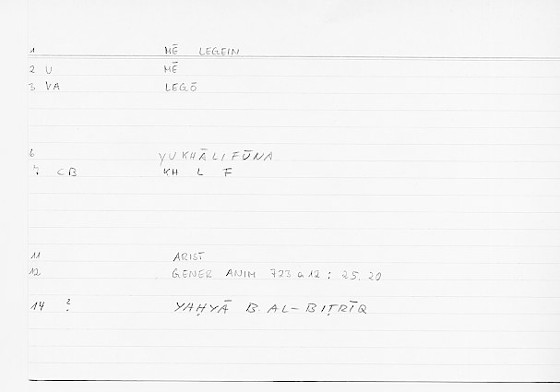 1 MĒ LEGEIN
2 U MĒ
3 VA LEGŌ
6 YUKHĀLIFŪNA
7 CB KH L F
11 ARIST
12 GENER ANIM 723 a 12 : 25. 20
14 ? YAḤYĀ B. AL-BIṬRĪQ